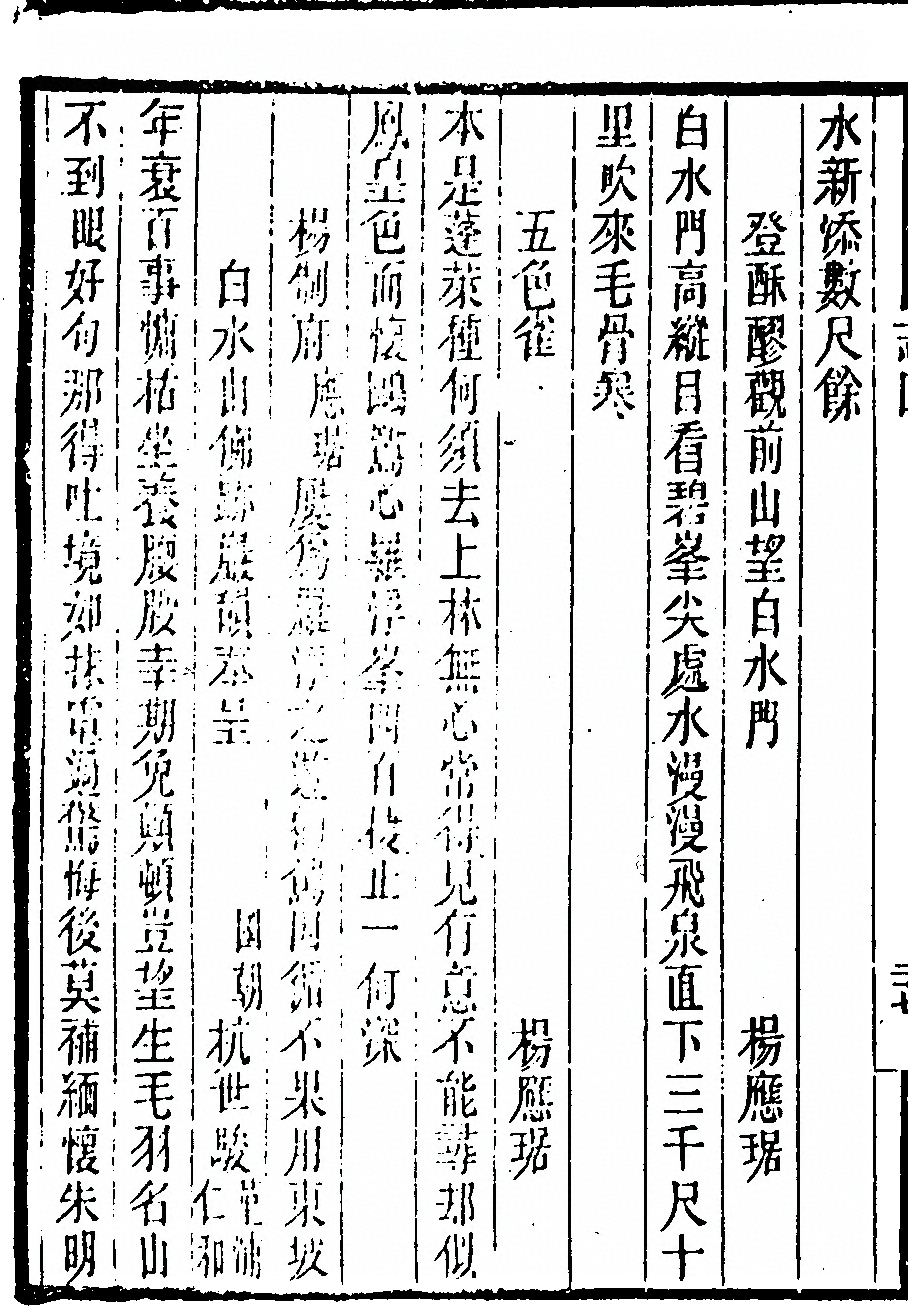 水新添數尺餘
登酥醪觀前山望白水門 楊應琚
白水門高縱目看碧峯尖處水漫漫飛泉直下三千尺十
里吹來毛骨寒
五色雀 楊應琚
本是蓬萊種何須去上林無心常得見有意不能尋却似
鳳皇色而懷鷗鷺心羅浮峯四百棲止一何深
楊制府應琚屢爲羅浮之遊因循不果用東坡
白水山佛跡巖韻奉呈 國朝杭世駿菫浦仁和
年衰百事慵枯坐養腹股幸期免顛頓豈望生毛羽名山
不到眼好句那得吐境如電過驚悔後莫補緬懷朱明